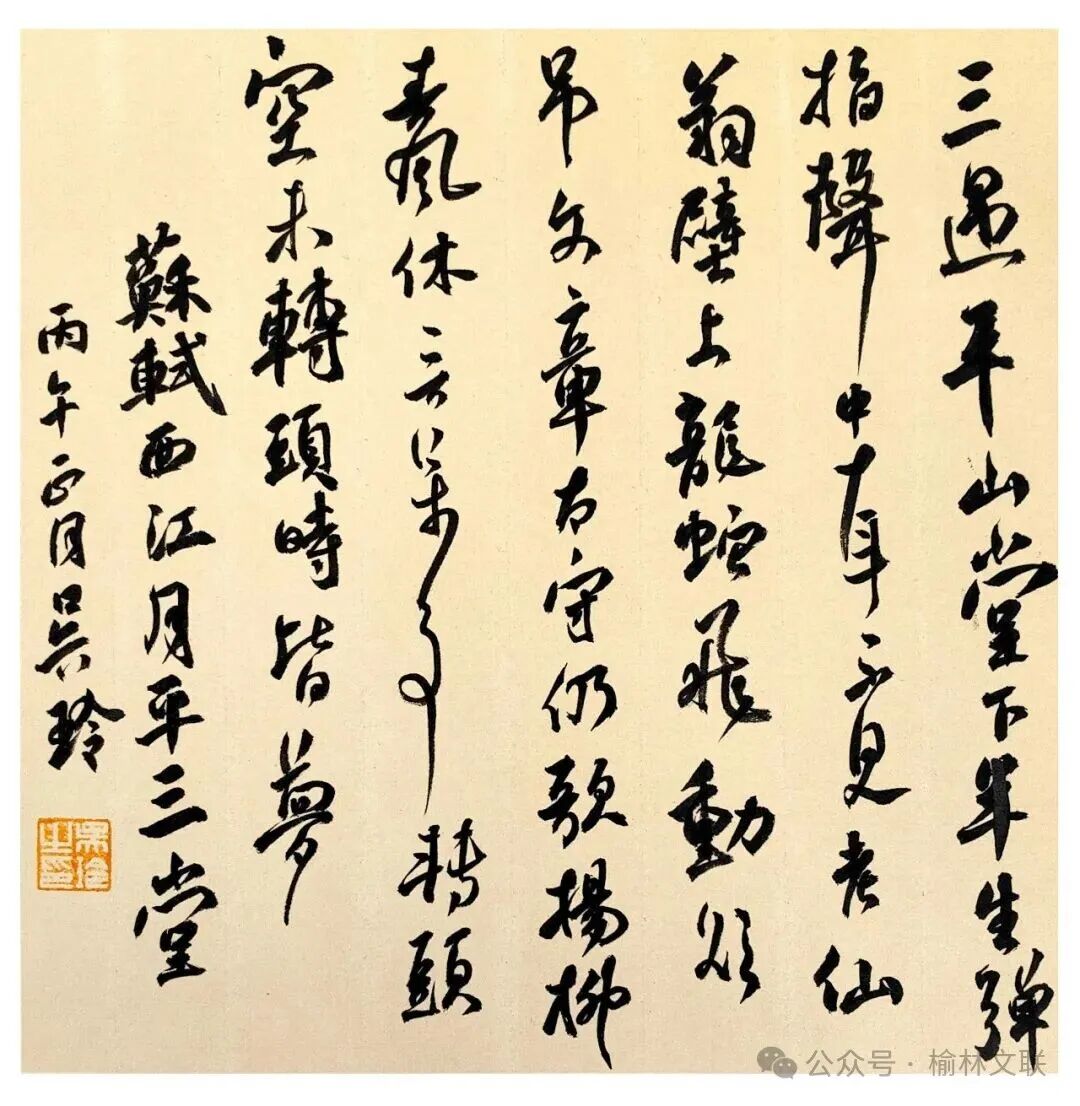 三過平山堂下半生彈
指聲中十年不見老仙
翁壁上龍蛇飛動欲
吊文章太守仍歌揚柳
春風休言萬事轉頭
空未轉頭時皆夢
蘇軾西江月平三堂
丙午正月吳玲
吳玲之印
公众号 · 榆林文联